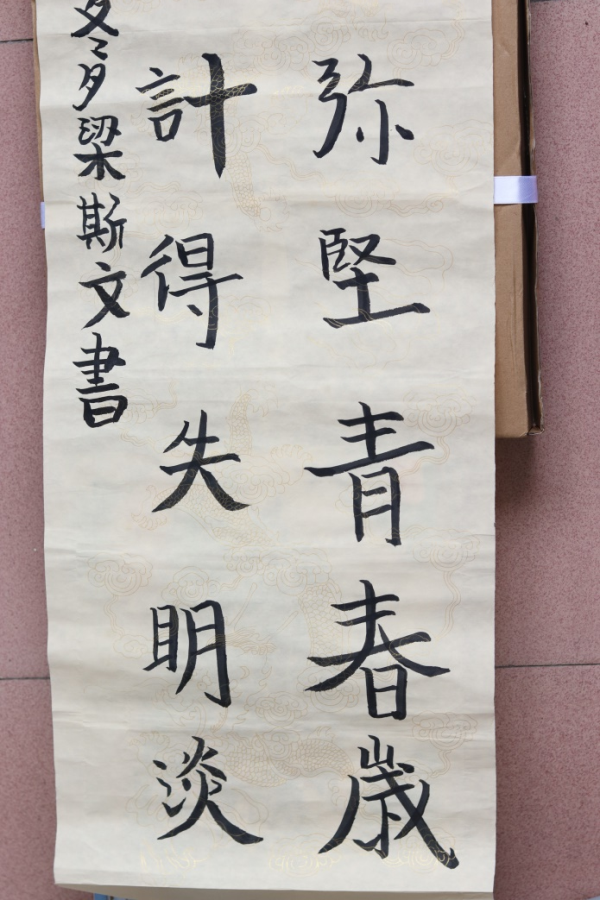 弥堅青春歲
計得失明淡
冬夕梁斯文書